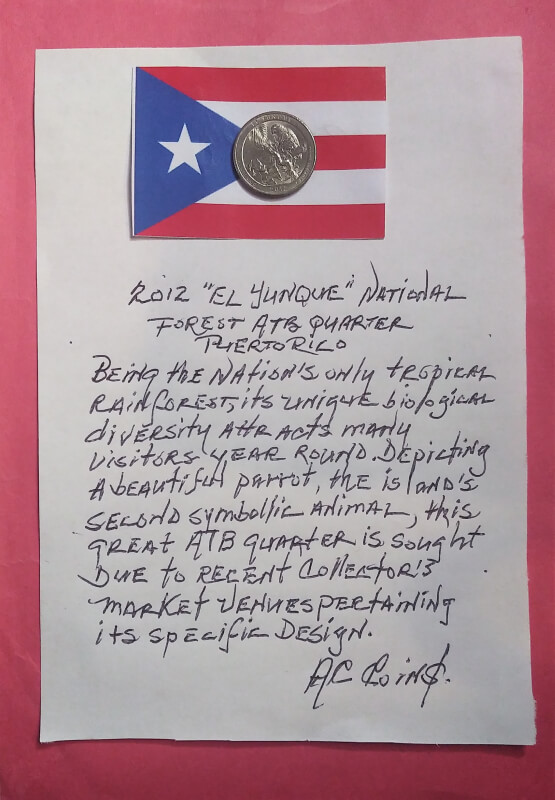 2012 "EL YUNQUE" NATIONAL
FOREST ATB QUARTER
PUERTO RICO
BEING THE NATION'S ONLY TROPICAL
RAINFOREST, ITS UNIQUE biological
diversity ATTRACTS MANY
VISITORS YEAR ROUND. Depicting
A beautiful parrot, the island's
SECOND symbollic ANIMAL, this
GREAT ATB QUARTER is sought
DUE TO RECENT COLLECTOR'S
MARKET VENUES PERTAINING
its specific DESIGN.
AC Coin$.